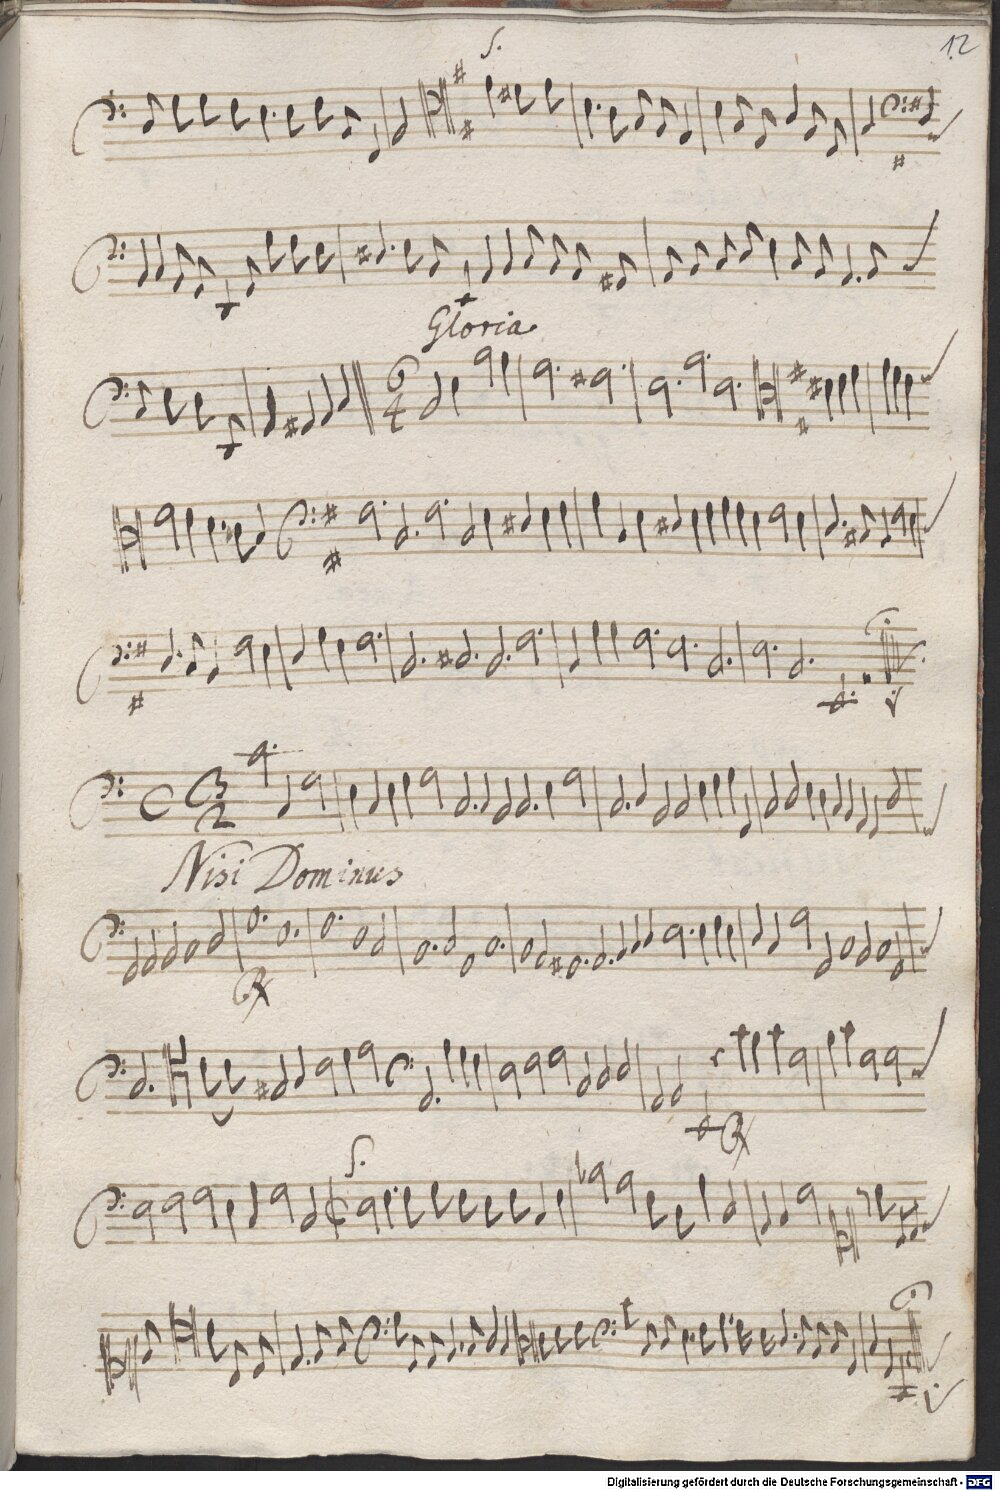 12
S.
Gloria
6
4
3
2
Nisi Dominus
S.
Digitalisierung gefördert durch die Deutsche Forschungsgemeinschaft - DFG